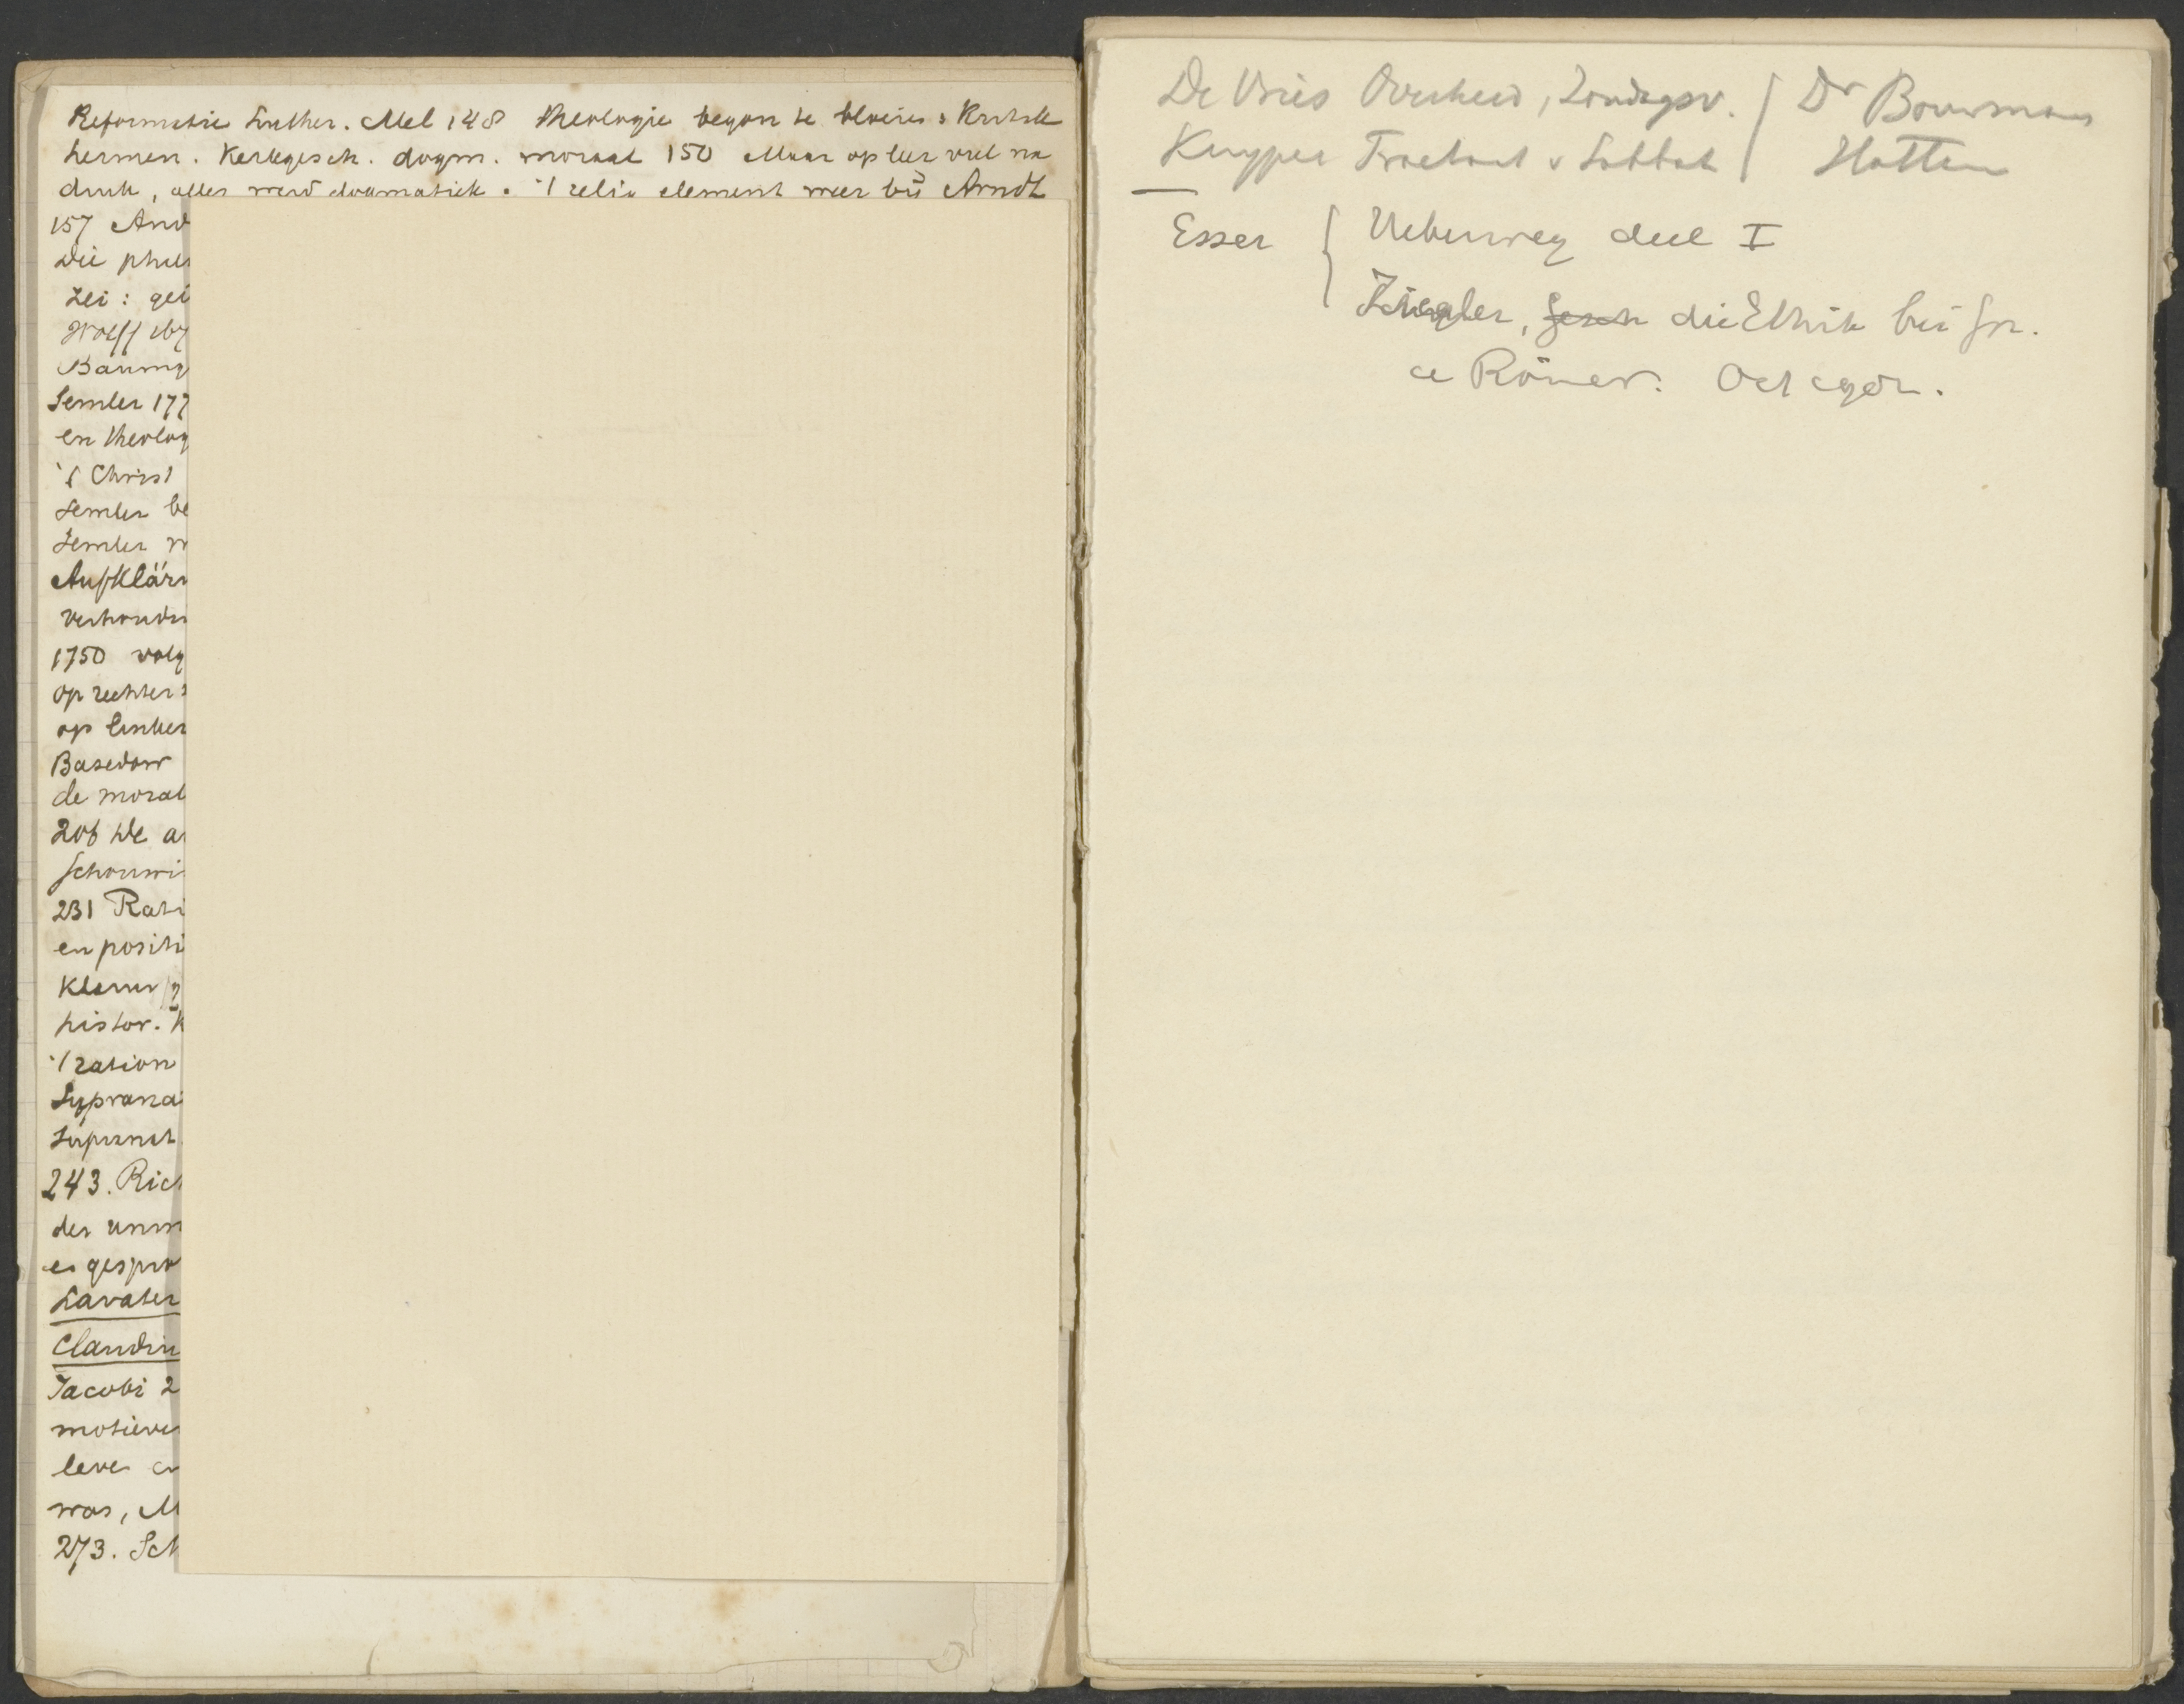 Reformatie Luther. Mel 148 Theologie begon te bloeien: Kritik
hermen. Kerkgesch. dogm. moraal 150 Maar op leer viel na
druk, alles werd dogmatisch. 't relig element weer bij Arndt
157 And
die phil
Lei: gei
Wolff
Baumg
Semler 177
en theolog
't Christ
Semler be
Semler
Aufklär
verhoudi
1750 volg
op rechter
op linker
Basedow
de moral
206 De a
schouwi
231 Rati
en positi
histor. K
't ration
Suprana
Supranat
243. Rich
der unm
Lavater
Claudiu
Jacobi 2
motieve
leve
was, M
273. Sch
De Vries Overheid, Zondagsv. Dr Bouwman
Kuyper Tractaat v Sabbat Hattem
Esser Ueberweg deel I
Ziegler, Gesch die Ethik bei Gr.
u Römer.